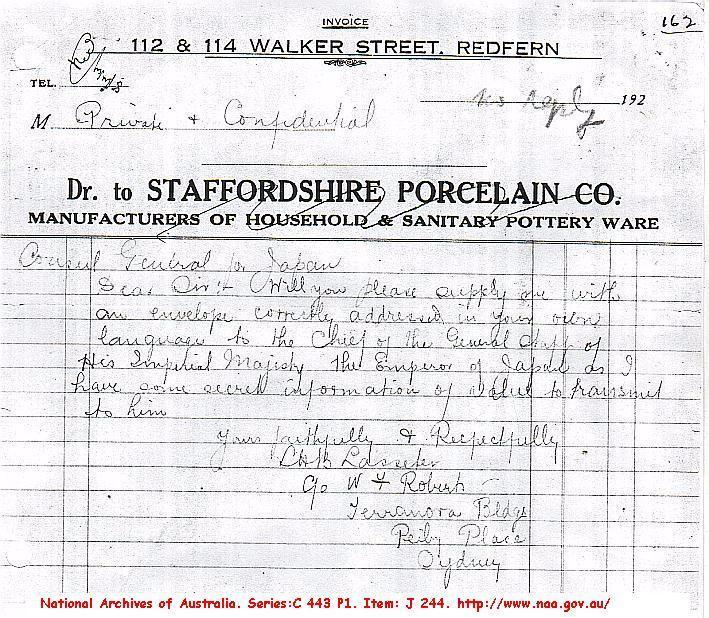 INVOICE
162
112 & 114 WALKER STREET. REDFERN
TEL.
no reply 192
M Private & Confidential
Dr. to STAFFORDSHIRE PORCELAIN CO.
MANUFACTURERS OF HOUSEHOLD & SANITARY POTTERY WARE
Consul General for Japan
Dear Sir Will you please supply me with
an envelope correctly addressed in your own
language to the Chief of the General Staff of
His Imperial Majesty the Emperor of Japan as I
have some secret information of value to transmit
to him
Yours faithfully & Respectfully
LHB Lasseter
C/o W Roberts
Terranora Bldgs
Reiby Place
Sydney
National Archives of Australia. Series:C 443 P1. Item: J 244. http://www.naa.gov.au/